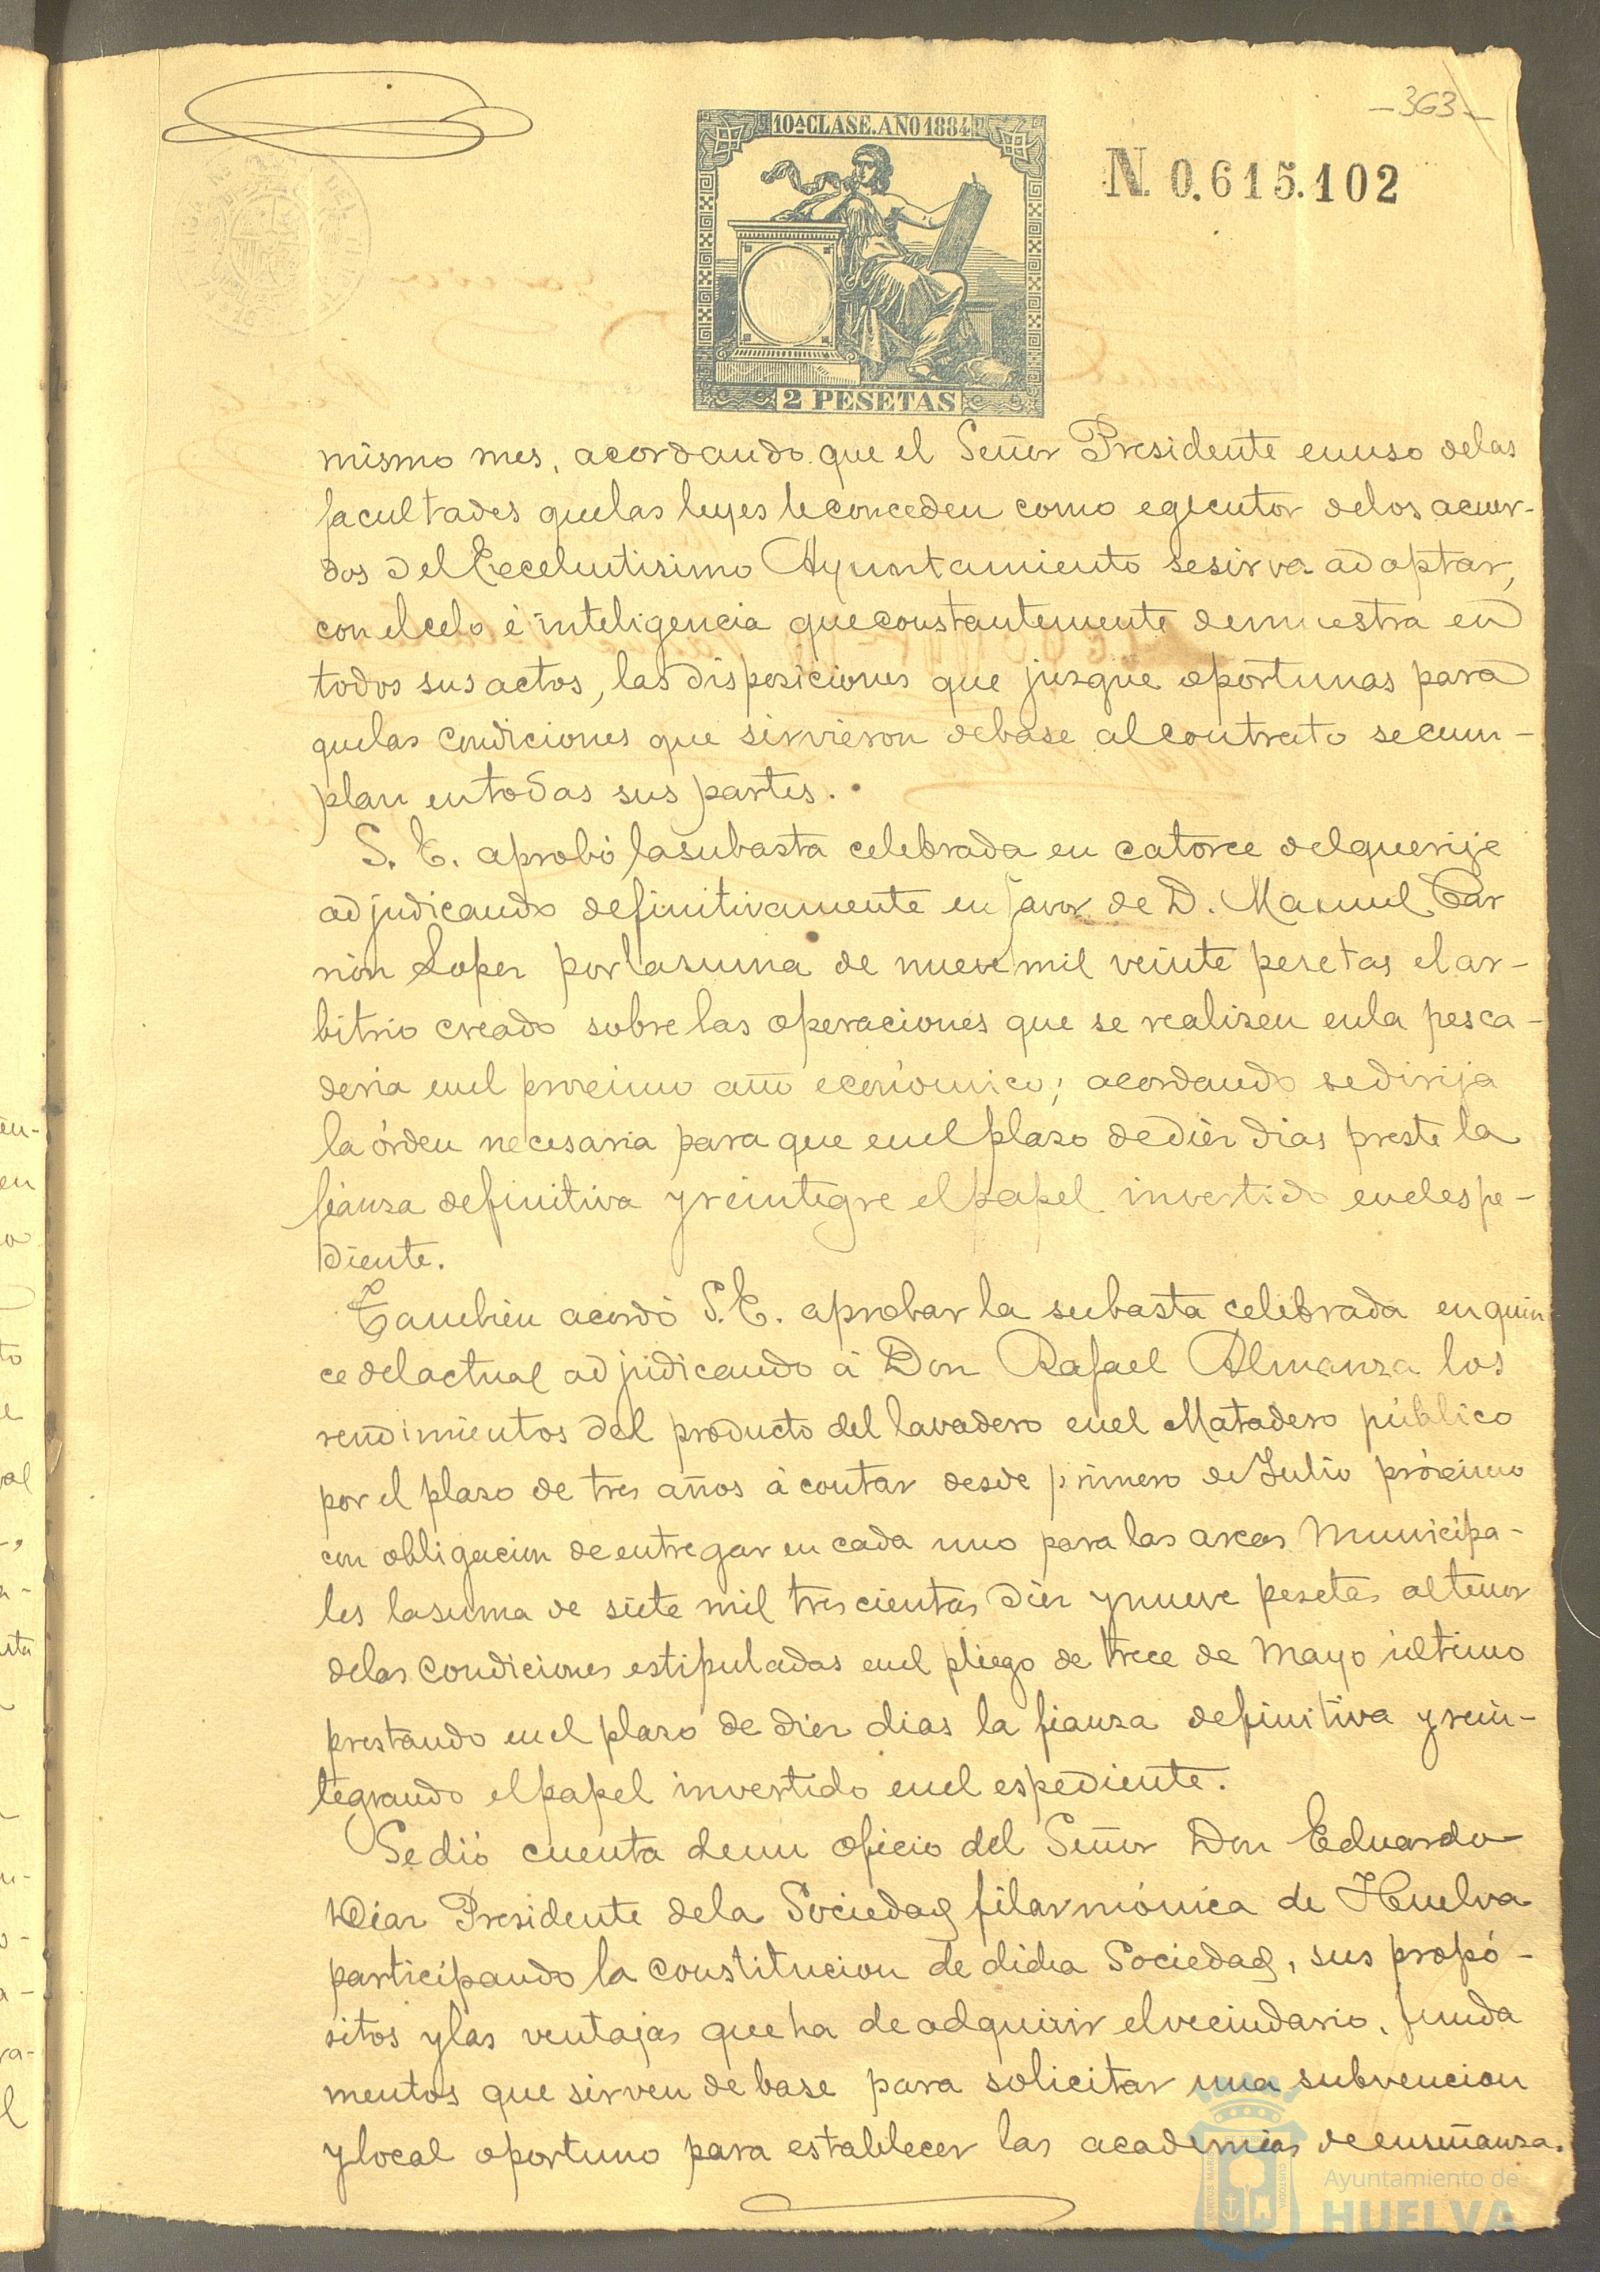 -363-
10ª CLASE. AÑO 1884
N. 0.615.102
2 PESETAS
mismo mes, acordando que el Señor Presidente en uso de las
facultades que las leyes le conceden como egecutor de los acuer-
dos del Excelentisimo Ayuntamiento se sirva adoptar,
con el celo é inteligencia que constantemente demuestra en
todos sus actos, las disposiciones que juzgue oportunas para
que las condiciones que sirvieron de base al contrato se cum-
plan en todas sus partes.
S. E. aprobó la subasta celebrada en catorce del que rige
adjudicando definitivamente en favor de D. Manuel Car
rión Lopez por la suma de nueve mil veinte pesetas el ar-
bitrio creado sobre las operaciones que se realizen en la pesca-
deria en el procsimo año económico; acordando se dirija
la órden necesaria para que en el plazo de diéz dias preste la
fianza definitiva y reintegre el papel invertido en el espe-
diente.
Tambien acordó S. E. aprobar la subasta celebrada en quin
ce del actual adjudicando á Don Rafael Almanza los
rendimientos del producto del lavadero en el Matadero público
por el plazo de tres años á contar desde primero de Julio prócsimo
con obligacion de entregar en cada uno para las arcas Municipa-
les la suma de siete mil trescientas diéz y nueve pesetas al tenor
de las condiciones estipuladas en el pliego de trece de Mayo último
prestando en el plazo de diez dias la fianza definitiva y rein-
tegrando el papel invertido en el espediente.
Se dió cuenta de un oficio del Señor Don Eduardo
Diaz Presidente de la Sociedad filarmónica de Huelva
participando la constitucion de dicha Sociedad, sus propó-
sitos y las ventajas que ha de adquirir el vecindario, funda
mentos que sirven de base para solicitar una subvencion
y local oportuno para establecer las academias de enseñanza.
Ayuntamiento de
HUELVA